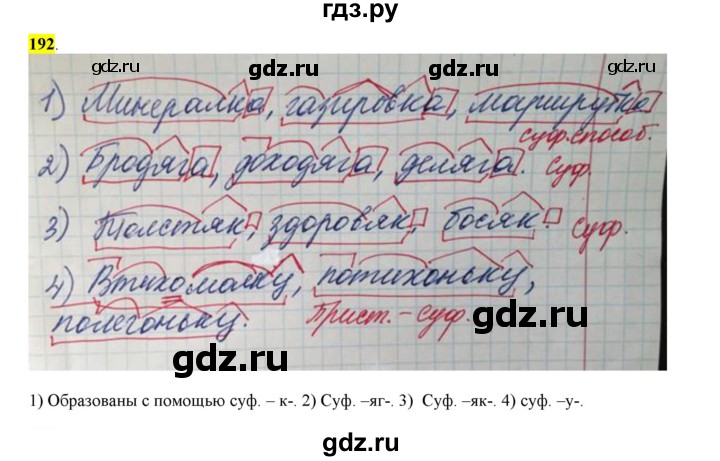 гдз.ру
192.
gdz.ru gdz.ru gdz.ru
1) Минералка, газировка, маршрутка
суф.способ.
2) Бродяга, доходяга, деляга. Суф.
gdz.ru gdz.ru
3) Толстяк, здоровяк, босяк. Суф.
gdz.ru gdz.ru gdz.ru
4) Втихомолку, потихоньку,
полегоньку. Прист.-суф.
gdz.ru gdz.ru
1) Образованы с помощью суф. – к-. 2) Суф. –яг-. 3) Суф. –як-. 4) суф. –у-.
gdz.ru